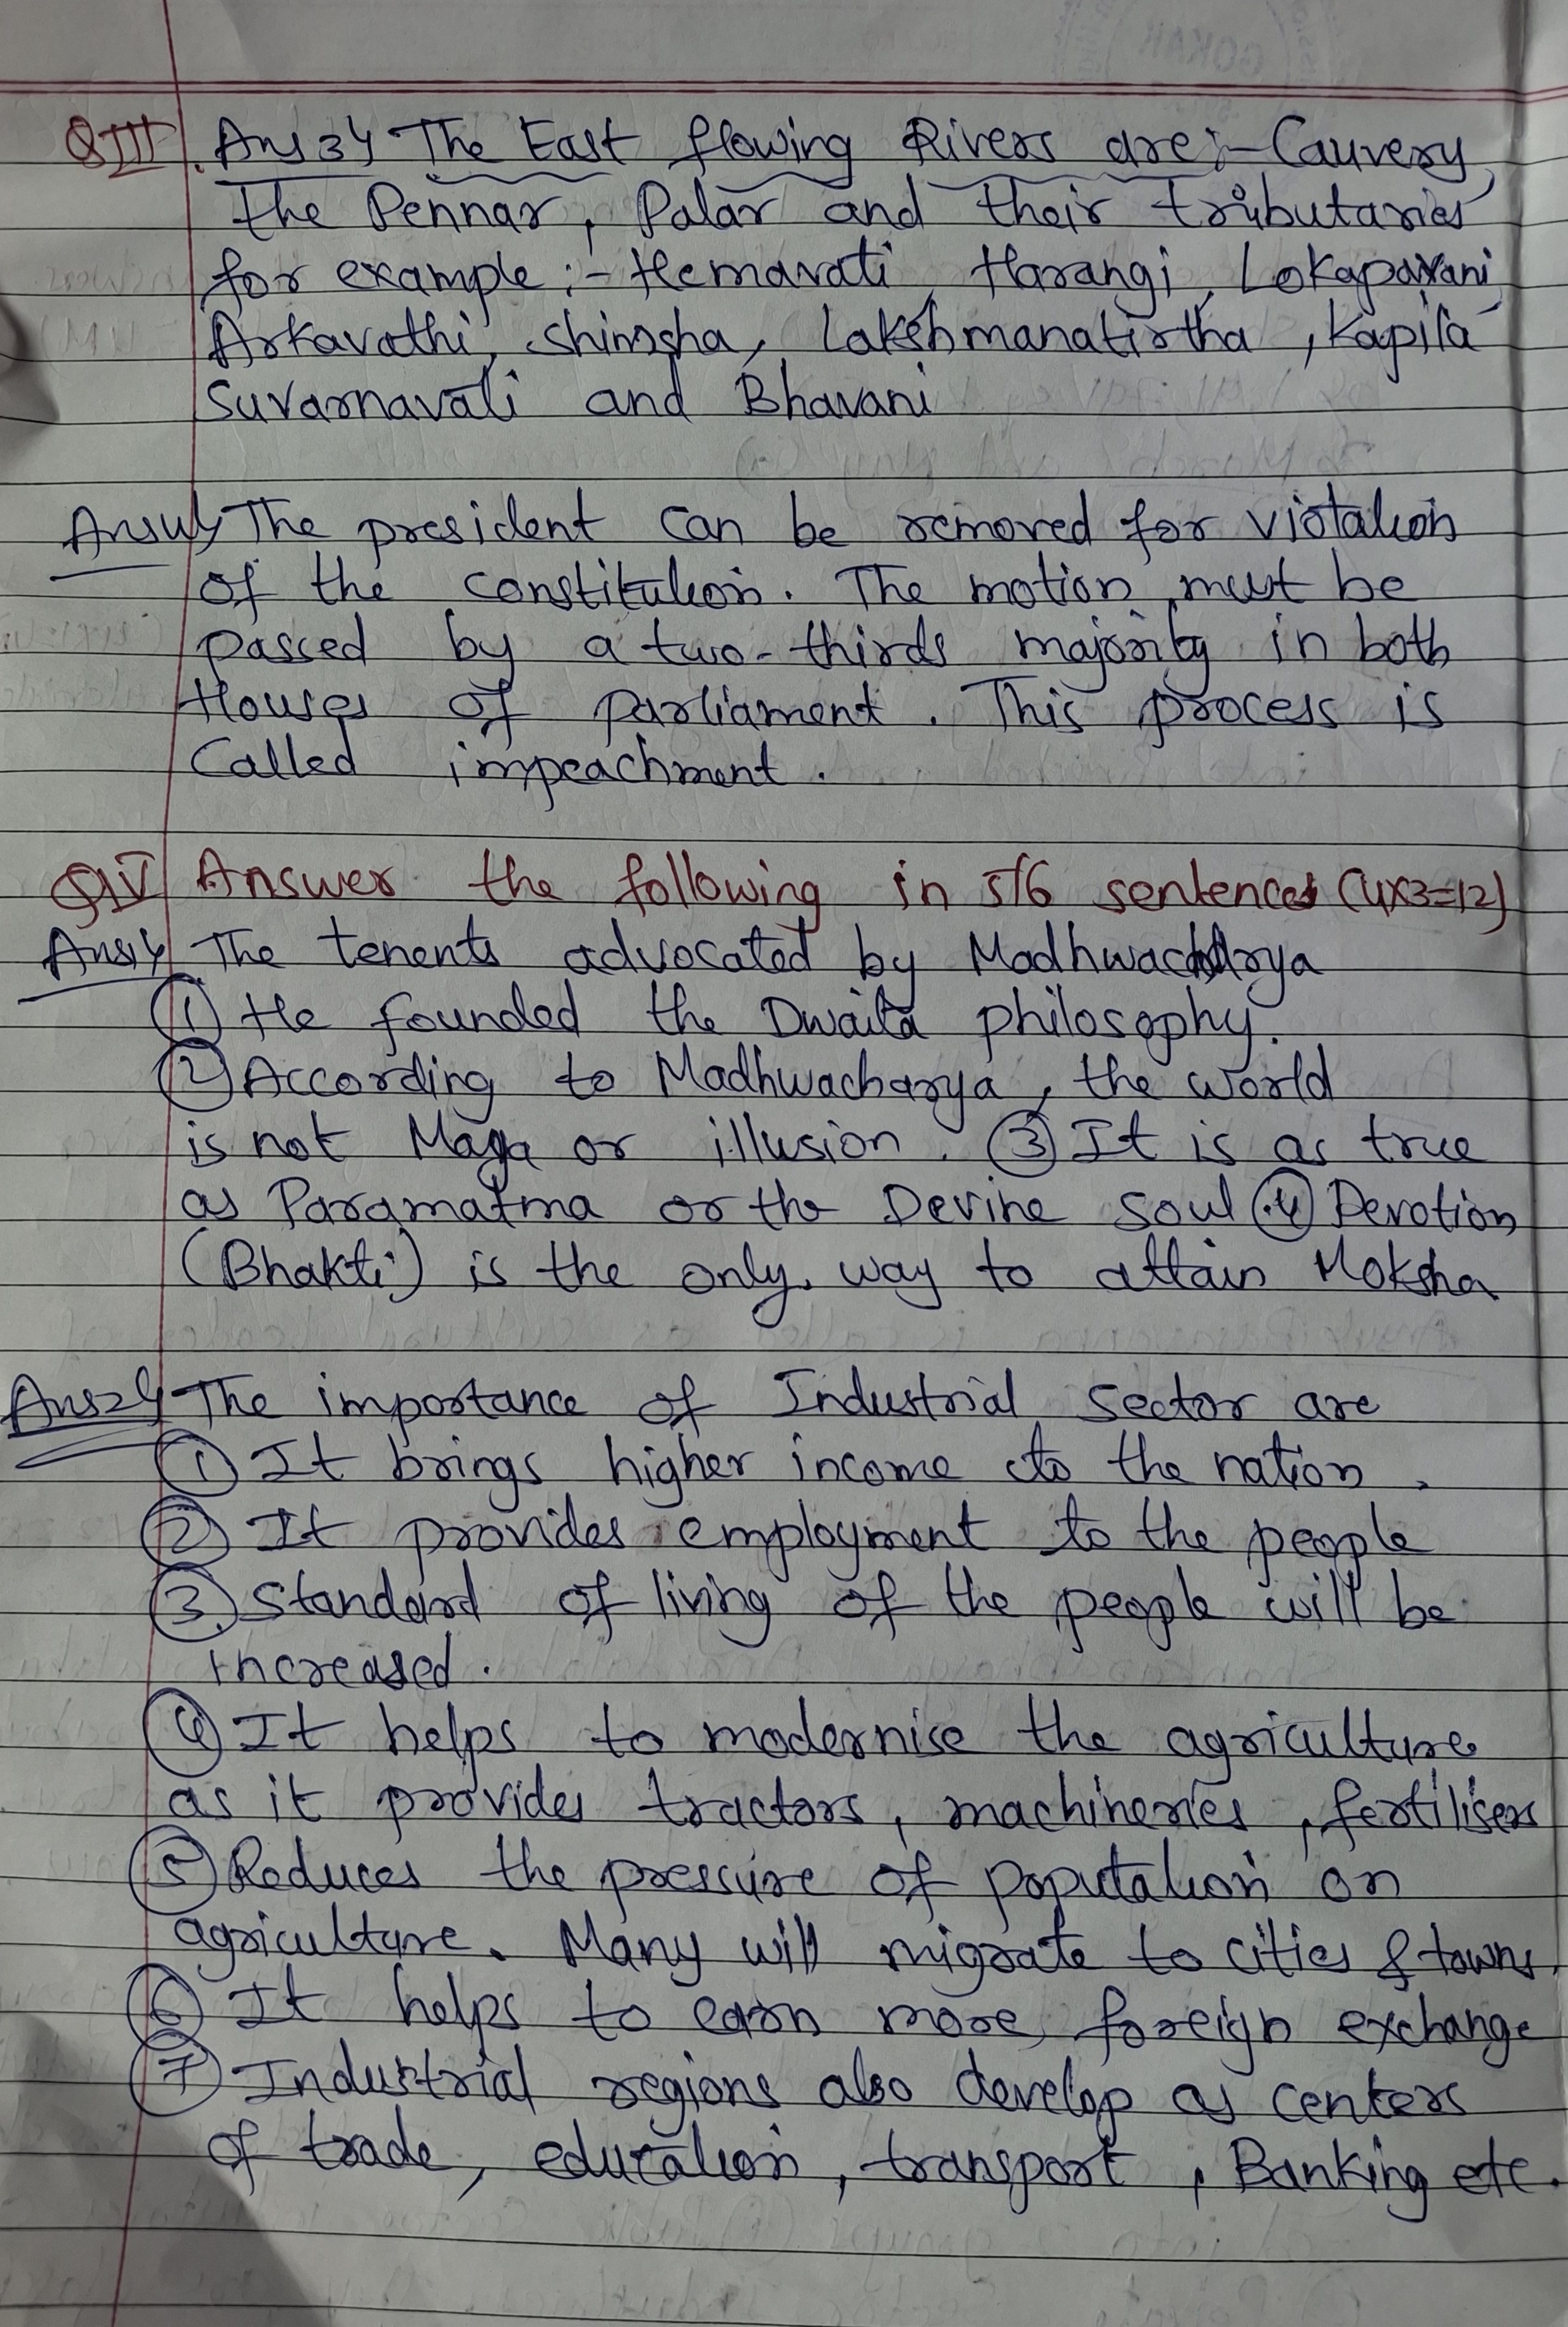 QIII. Ans 3y The East flowing Rivers are:- Cauvery,
the Pennar, Palar and their tributaries
for example :- Hemavati, Harangi, Lokapavani,
Arkavathi, Shimsha, Lakshmanatirtha, Kapila
Suvarnavati and Bhavani
Ans4y The president can be removed for violation
of the constitution. The motion must be
passed by a two-thirds majority in both
Houses of Parliament. This process is
Called impeachment.
QIV Answer the following in 5/6 sentences (4x3=12)
Ans1y The tenents advocated by Madhwacharya
① He founded the Dwaita philosophy.
② According to Madhwacharya, the world
is not Maya or illusion. ③ It is as true
as Paramatma or the Devine Soul. ④ Devotion
(Bhakti) is the only way to attain Moksha
Ans2y The importance of Industrial Sector are
① It brings higher income to the nation.
② It provides employment to the people
③ Standard of living of the people will be
increased.
④ It helps to modernise the agriculture
as it provides tractors, machineries, fertilisers
⑤ Reduces the pressure of population on
agriculture. Many will migrate to cities & towns.
⑥ It helps to earn more foreign exchange
⑦ Industrial regions also develop as centers
of trade, education, transport, Banking etc.